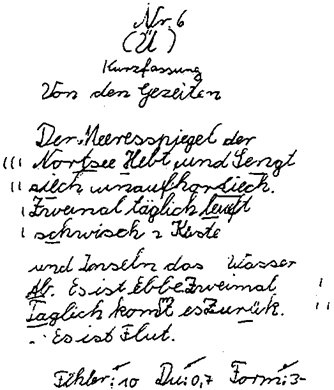 Nr. 6
(Ü)
Kurzfassung
Von den Gezeiten
Der Meeresspiegel der
Nortsee Hebt und Sengt
siech unaufharliech.
Zweimal täglich leuft
schwisch 2 Küste
und Inseln das Wasser
Ab. Es ist Ebbe Zweimal
Täglich komt es Zurük.
Es ist Flut.
Fehler: 10 Du: 0,7 Form: 3-